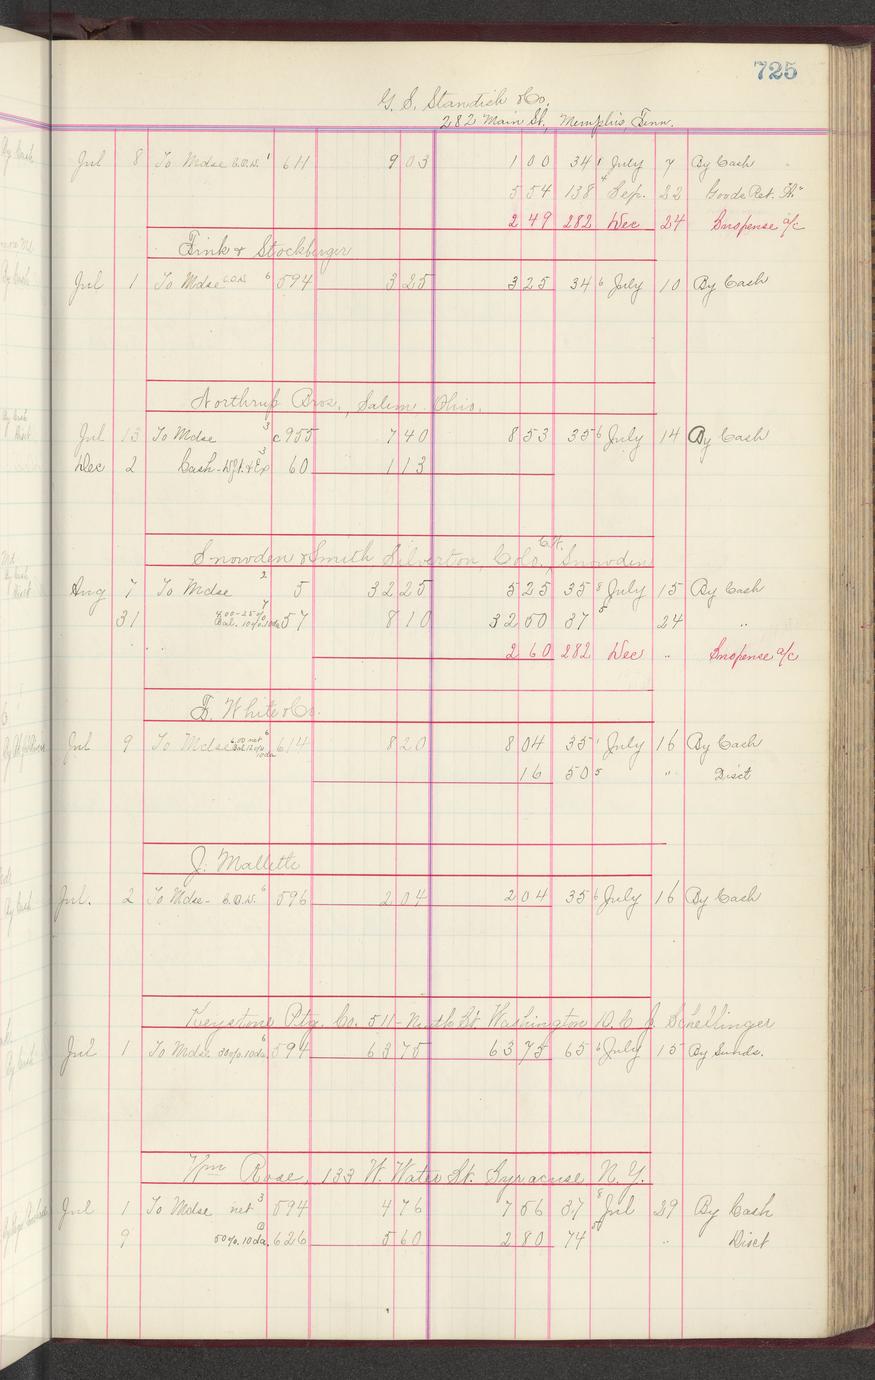 725
G. S. Standish & Co.
282 Main St, Memphis, Tenn.
Jul 8 To Mdse C.O.D. 1 611 9 03 1 00 34 1 July 7 By Cash
5 54 138 4 Sep. 22 Goods Ret.
2 49 282 Dec 24 Suspense a/c
Fink & Stockberger
Jul 1 To Mdse C.O.D. 6 594 3 25 3 25 34 6 July 10 By Cash
Northrup Bros., Salem Ohio.
Jul 13 To Mdse 3 c955 7 40 8 53 35 6 July 14 By Cash
Dec 2 Cash - & Ex 3 60 1 13
Snowden & Smith Silverton, Colo., Snowden
Aug 7 To Mdse 2 5 32 25 5 25 35 8 July 15 By Cash
31 4.00-25% Bal. 10% 10da 7 57 8 10 32 50 37 5 24 "
2 60 282 Dec " Suspense a/c
F. White & Co.
Jul 9 To Mdse 6.00 net Bal 12% 10da 6 614 8 20 8 04 35 1 July 16 By Cash
16 50 5 " Disct
J. Mallette
Jul. 2 To Mdse - C.O.D. 6 596 2 04 2 04 35 6 July 16 By Cash
Keystone Ptg. Co. 511 - Ninth St Washington D.C J. Schellinger
Jul 1 To Mdse. 30% 10da. 6 594 63 75 63 75 65 6 July 15 By Sunds.
Wm Rose, 133 W. Water St. Syracuse N.Y.
Jul 1 To Mdse net 3 594 4 76 7 56 37 8 Jul 29 By Cash
9 50% 10da. 626 5 60 2 80 74 " Disct